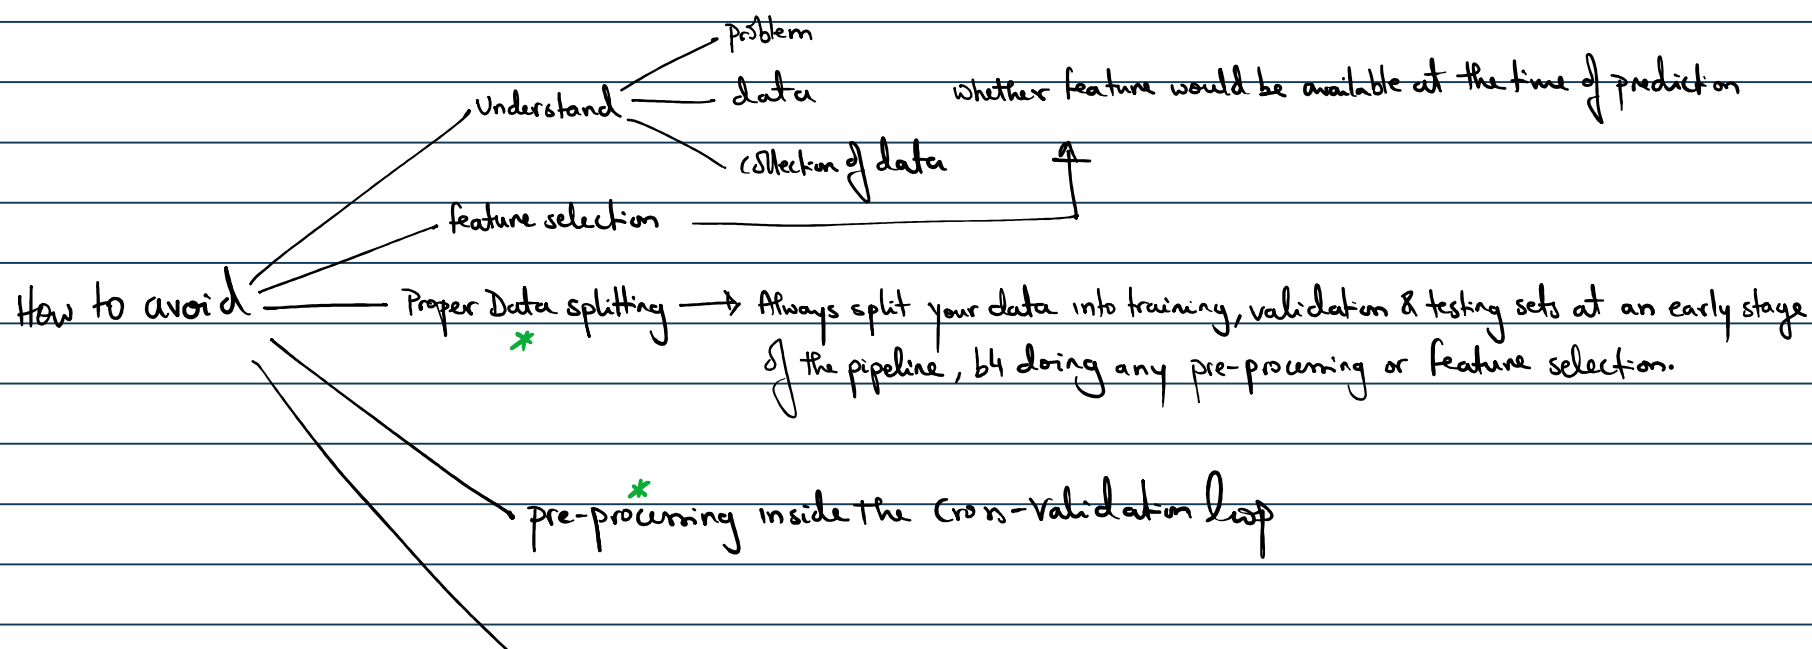 problem
understand
data
whether feature would be available at the time of prediction
collection of data
feature selection
How to avoid
Proper Data splitting → Always split your data into training, validation & testing sets at an early stage
*
of the pipeline, b4 doing any pre-processing or feature selection.
*
pre-processing inside the cross-validation loop